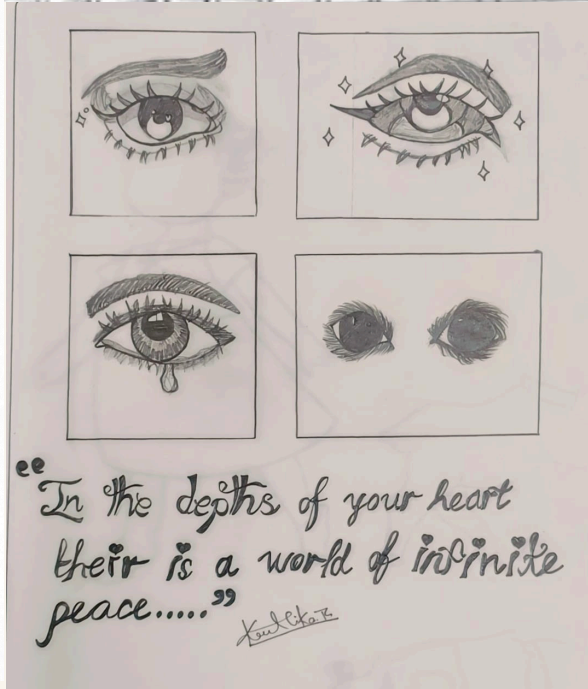 “In the depths of your heart
their is a world of infinite
peace.....”